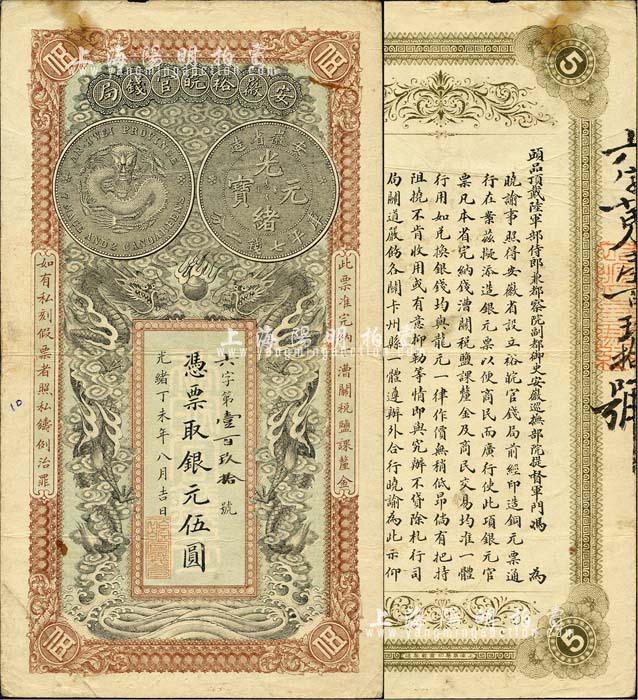 上海陽明拍賣
yangmingauction.com
安徽裕皖官錢局
AN-HWEI PROVINCE
7 MACE AND 2 CANDAREENS
安徽省造
光緒元寶
庫平七錢二分
此票准完納漕關稅鹽課釐金
如有私刻假票者照私鑄例治罪
六字第壹百玖拾號
憑票取銀元伍圓
光緒丁未年八月吉日
上海陽明拍賣
yangmingauction.com
5
頭品頂戴陸軍部侍郎兼都察院副都御史安徽巡撫部院提督軍門馮 為
曉諭事照得安徽省設立裕皖官錢局前經印造銅元票通
行在案茲擬添造銀元票以便商民而廣行使此項銀元官
票凡本省完納錢漕關稅鹽課釐金及商民交易均准一體
行用如兌換銀錢均與龍元一律作價無稍低昂倘有把持
阻撓不肯收用或有意抑勒等情即與究辦不貸除札行司
局關道嚴飭各關卡州縣一體遵辦外合行曉諭為此示仰
5
上海陽明拍賣
yangmingauction.com
10